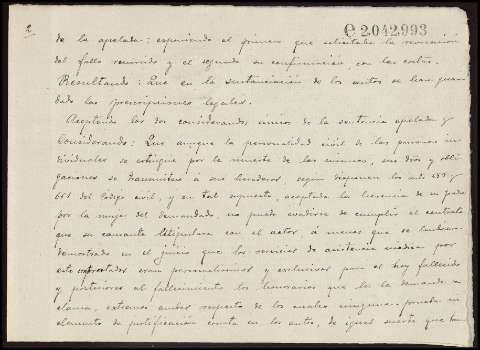 2 C 2.042.993
de la apelada: exponiendo el primero que solicitaba la revocación
del fallo recurrido y el segundo su confirmación, con las costas.
Resultando: Que en la sustanciación de los autos se han guar
dado las prescripciones legales.
Aceptando los dos considerandos únicos de la sentencia apelada y
Considerando: Que aunque la personalidad civil de las personas in
dividuales se extingue por la muerte de las mismas, sus dros y obli
gaciones se transmiten á sus herederos, según disponen los arts 659 y
661 del Código civil, y en tal supuesto, aceptada la herencia de su padre
por la mujer del demandado, no puede evadirse de cumplir el contrato
que su causante estipulara con el actor, á menos que se hubiera
demostrado en el juicio que los servicios de asistencia médica por
este prestados eran personalísimos y exclusivos para el hoy fallecido
y posteriores al fallecimiento los honorarios que en la demanda re
clama, extremos ambos respecto de los cuales ninguna prueba ni
elemento de justificación consta en los autos, de igual suerte que